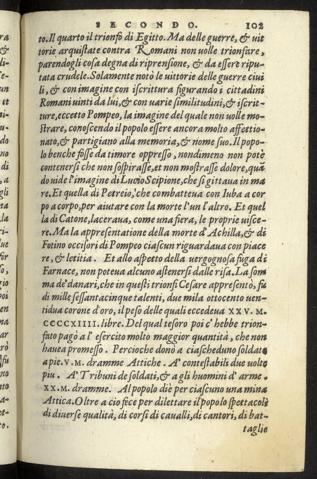 SECONDO. 102
to. Il quarto il trionfo di Egitto. Ma delle guerre, & uit
torie acquistate contra Romani non uolle trionfare,
parendogli cosa degna di riprensione, & da essere ripu-
tata crudele. Solamente notò le uittorie delle guerre ciui
li, & con imagine con iscrittura figurando i cittadini
Romani uinti da lui, & con uarie similitudini, & iscrit-
ture, eccetto Pompeo, la imagine del quale non uolle mo-
strare, conoscendo il popolo essere ancora molto affettio-
nato, & partigiano alla memoria, & nome suo. Il popo-
lo benche fosse da timore oppresso, nondimeno non potè
contenersi che non sospirasse, et non mostrasse dolore, quã
do uide l'imagine di Lucio Scipione, che si gittaua in ma
re. Et quella di Petreio, che combatteua con Iuba a cor
po a corpo, per aiutare con la morte l'un l'altro. Et quel
la di Catone, laceraua, come una fiera, le proprie uisce-
re. Ma la representatione della morte d'Achilla, & di
Fotino occisori di Pompeo ciascun riguardaua con piace
re, & letitia. Et allo aspetto della uergognosa fuga di
Farnace, non poteua alcuno astenersi dalle risa. La som
ma de' danari, che in questi trionfi Cesare appresentò, fù
di mille sessantacinque talenti, due mila ottocento uen-
tidua corone d'oro, il peso delle quali eccedeua XXV. M.
CCCCXIIII. libre. Del qual tesoro poi c'hebbe trion-
fato pagò a l'esercito molto maggior quantità, che non
haueua promesso. Percioche donò a ciascheduno soldato
a pie. V. M. dramme Attiche. A' contestabili due uolte
piu. A' Tribuni de soldati, & a gli huomini d'arme
XX. M. dramme. Al popolo diè per ciascuno una mina
Attica. Oltre a ciò fece per dilettare il popolo spettacolo
di diuerse qualità, di corsi di caualli, di cantori, di bat-
taglie